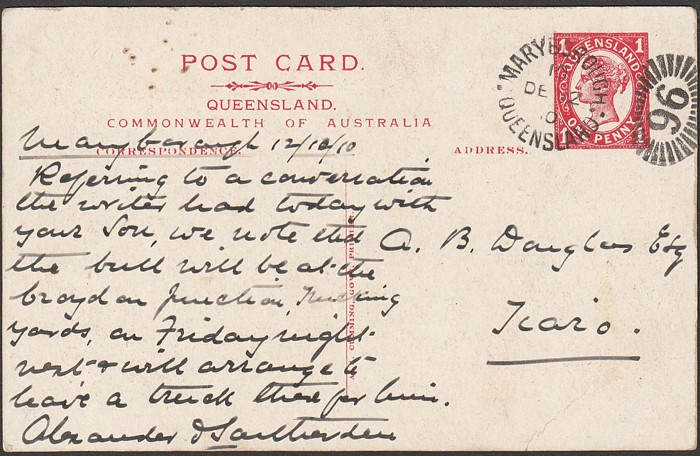 POST CARD.
QUEENSLAND.
COMMONWEALTH OF AUSTRALIA
CORRESPONDENCE.
ADDRESS.
QUEENSLAND
1 1
ONE PENNY
MARYBOROUGH
DE 12
10
QUEENSLAND
96
Maryborough 12/12/10
Referring to a conversation
the writer had today with
your Son, we note that
the bull will be at the
Croydon Junction, Trucking
yards, on Friday night
next & will arrange to
leave a truck there for him.
Alexander &
A. B. Douglas Esq
Tiaro.
CUMMING, GOVT. PRINTER.